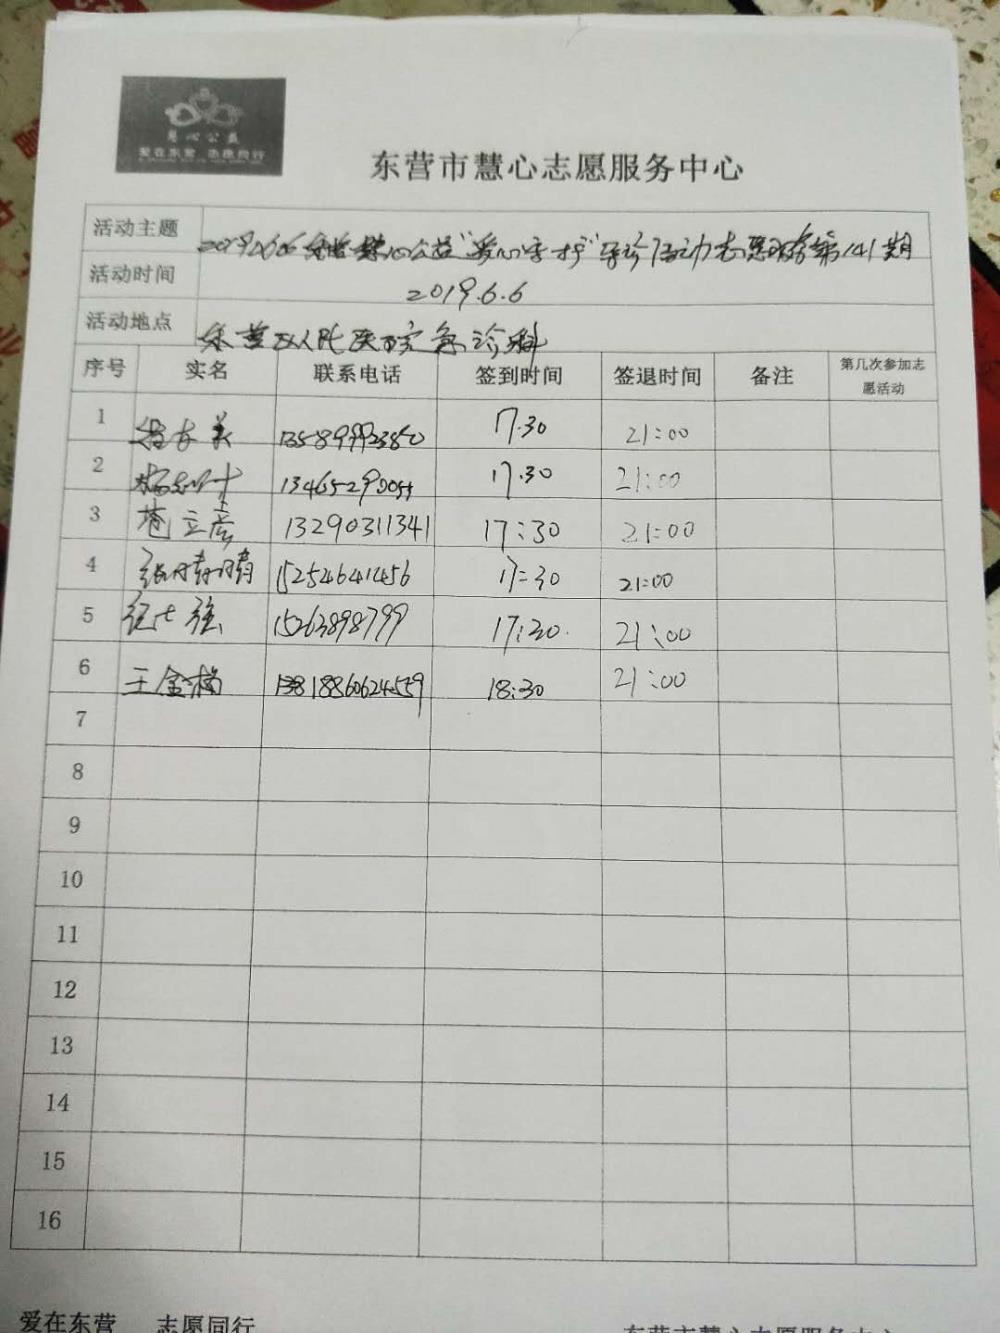 慧心公益
爱在东营 志愿同行
东营市慧心志愿服务中心
活动主题 20190606东营慧心公益"爱心守护"导诊活动志愿服务第141期
活动时间 2019.6.6
活动地点 东营区人民医院急诊科
序号 实名 联系电话 签到时间 签退时间 备注 第几次参加志愿活动
1 17.30 21:00
2 17.30 21:00
3 苑立彦 13290311341 17:30 21:00
4 张晴晴 15254641456 17:30 21:00
5 纪七强 15263898799 17:30. 21:00
6 王金梅 18860624559 18:30 21:00
7
8
9
10
11
12
13
14
15
16
爱在东营 志愿同行 东营市慧心志愿服务中心